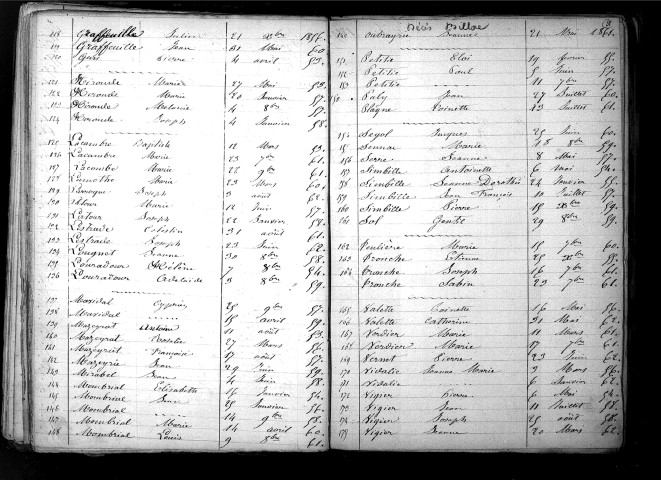 118 Graffeuille Julien 21 Xbre 1856.
119 Graffeuille Jean 31 Mai 60
120 Pierre 4 avril 53.
121 Hironde Marie 27 Mai 53.
122 Hironde Marie 20 Janvier 57.
123 Hironde Melanie 4 8bre 57.
124 Hironde Joseph 4 Janvier 58.
125 Lacambre Baptiste 12 Mars 53.
126 Lacambre Marie 23 7bre 61.
127 Lacombe Marie 22 9bre 61.
128 Lamothe Marie 23 Mars 60.
129 Joseph 3 août 62.
130 Marie 12 Juin 57.
131 Lestour Joseph 22 Janvier 58.
132 Lestrade Celestin 31 août 61.
133 Lestrade Joseph 23 Juin 62.
134 Jeanne 30 8bre 58.
135 Louradour Hélène 7 8bre 54.
136 Louradour Adelaïde 3 8bre 59.
137 Mavidal Cyprien 25 9bre 57.
138 Mavidal 18 avril 59.
139 Mazeyrat Antoine 11 août 53.
140 Mazeyrat 27 Mars 56.
141 Mazeyrat Françoise 17 août 57.
142 Mazeyrie Jean 29 Juin 59.
143 Mirabel Jean 4 Juin 58.
144 Mombrial Elisabeth 16 Janvier 54.
145 Mombrial Jean 25 Janvier 56.
146 Mombrial 14 9bre 58.
147 Mombrial Marie 14 avril 60.
148 Mombrial Louis 9 8bre 61.
Décès
Oubayrie Jeanne 21 Mai 1861.
151 Petitie Eloi 19 février 55.
152 Petitie Paul 10 Juin 57.
153 Petitie 11 7bre 57.
Jean 27 Juillet 60.
Plagne Toinette 23 Juillet 61.
154 Seyol Jacques 25 Juin 60.
155 Sennac Marie 18 8bre 59.
156 Serre Jeanne 8 Mai 57.
157 Simbille Antoinette 6 Mai 54.
158 Simbille Jeanne Dorothée 24 Janvier 55.
159 Simbille Jean François 10 Juillet 57.
160 Simbille Pierre 18 Xbre 59.
161 Sol 29 8bre 59.
162 Teulière Marie 15 7bre 60.
163 Tronche Etienne 25 Xbre 55.
164 Tronche Joseph 16 7bre 61.
Tronche Sabin 23 7bre 61.
165 Valette Toinette 16 Mai 56.
166 Valette Catherine 21 Mai 62.
167 Verdier Marie 11 Mars 61.
168 Verdier Marie 17 7bre 61.
169 Vernet Pierre 23 Juin 62.
170 Vidalie Jeanne Marie 3 Mars 56.
171 Vidalie 6 Janvier 62.
172 Vigier Pierre 6 Mai 54.
173 Vigier Jean 11 Juillet 58.
174 Vigier Joseph 25 août 58.
175 Vigier Jeanne 20 Mars 62.